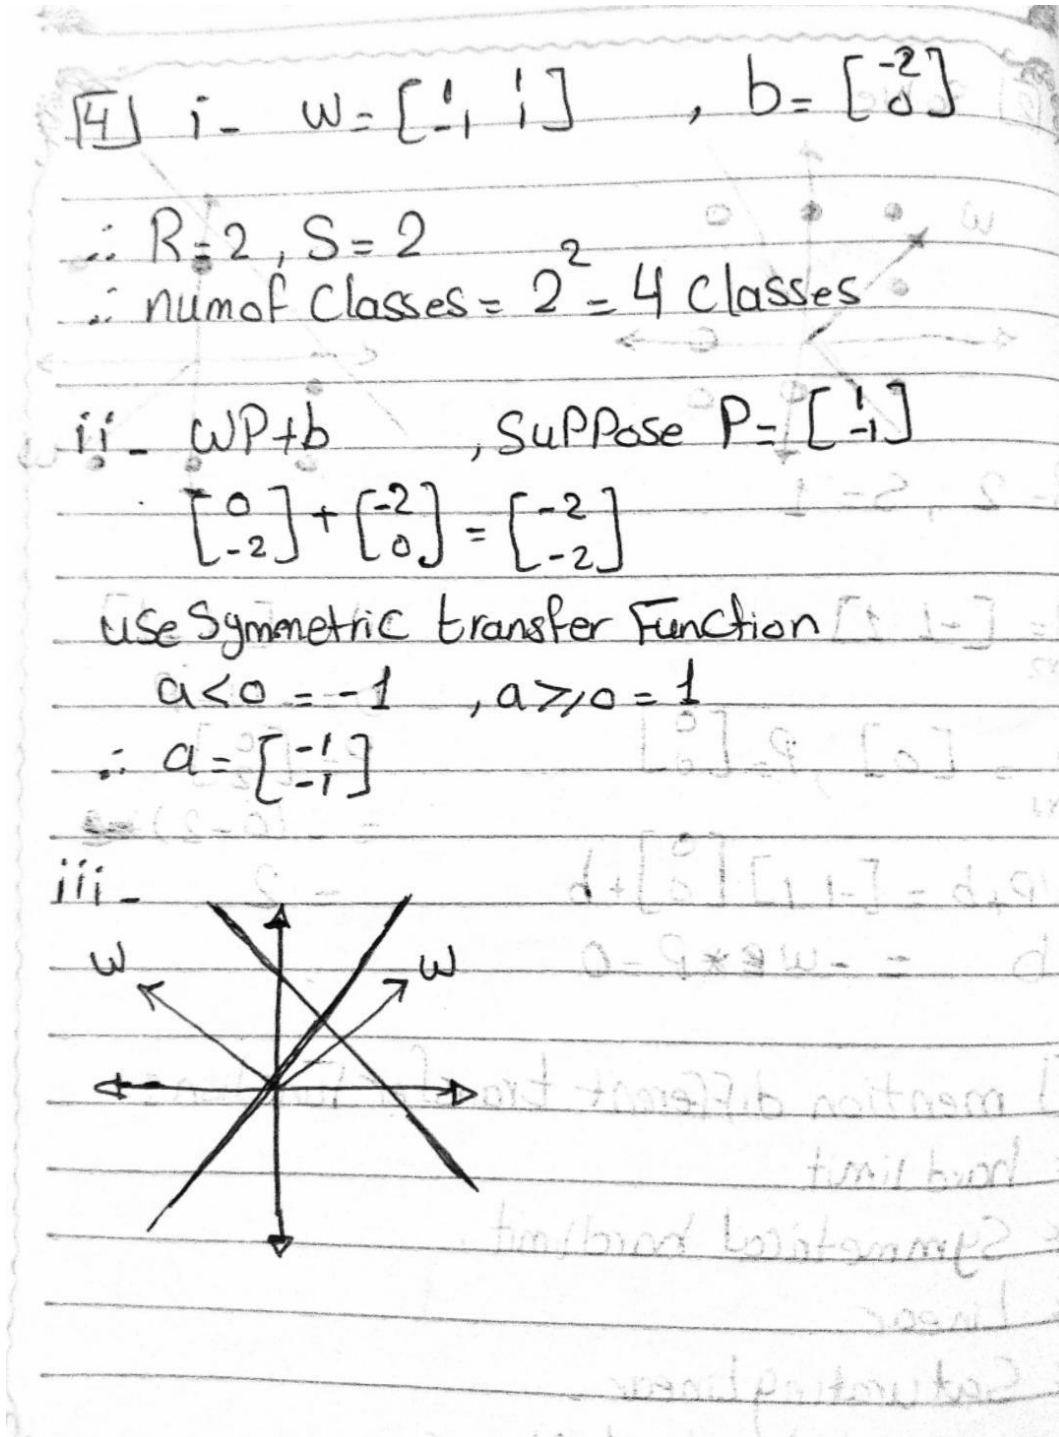 4 i - W = [1 1 -1 1] , b = [-2 0]
∴ R = 2 , S = 2
∴ num of classes = 2² = 4 classes
ii - WP+b , suppose P = [1 -1]
[0 -2] + [-2 0] = [-2 -2]
use Symmetric transfer Function
a<0 = -1 , a≥0 = 1
∴ a = [-1 -1]
iii -
W W